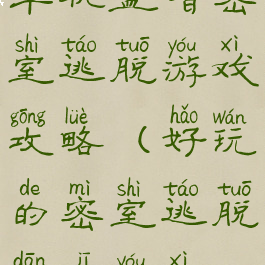 shì táo tuō yóu xì
室逃脱游戏
gōng lüè hǎo wán
攻略（好玩
de mì shì táo tuō
的密室逃脱
dān jī yóu xì